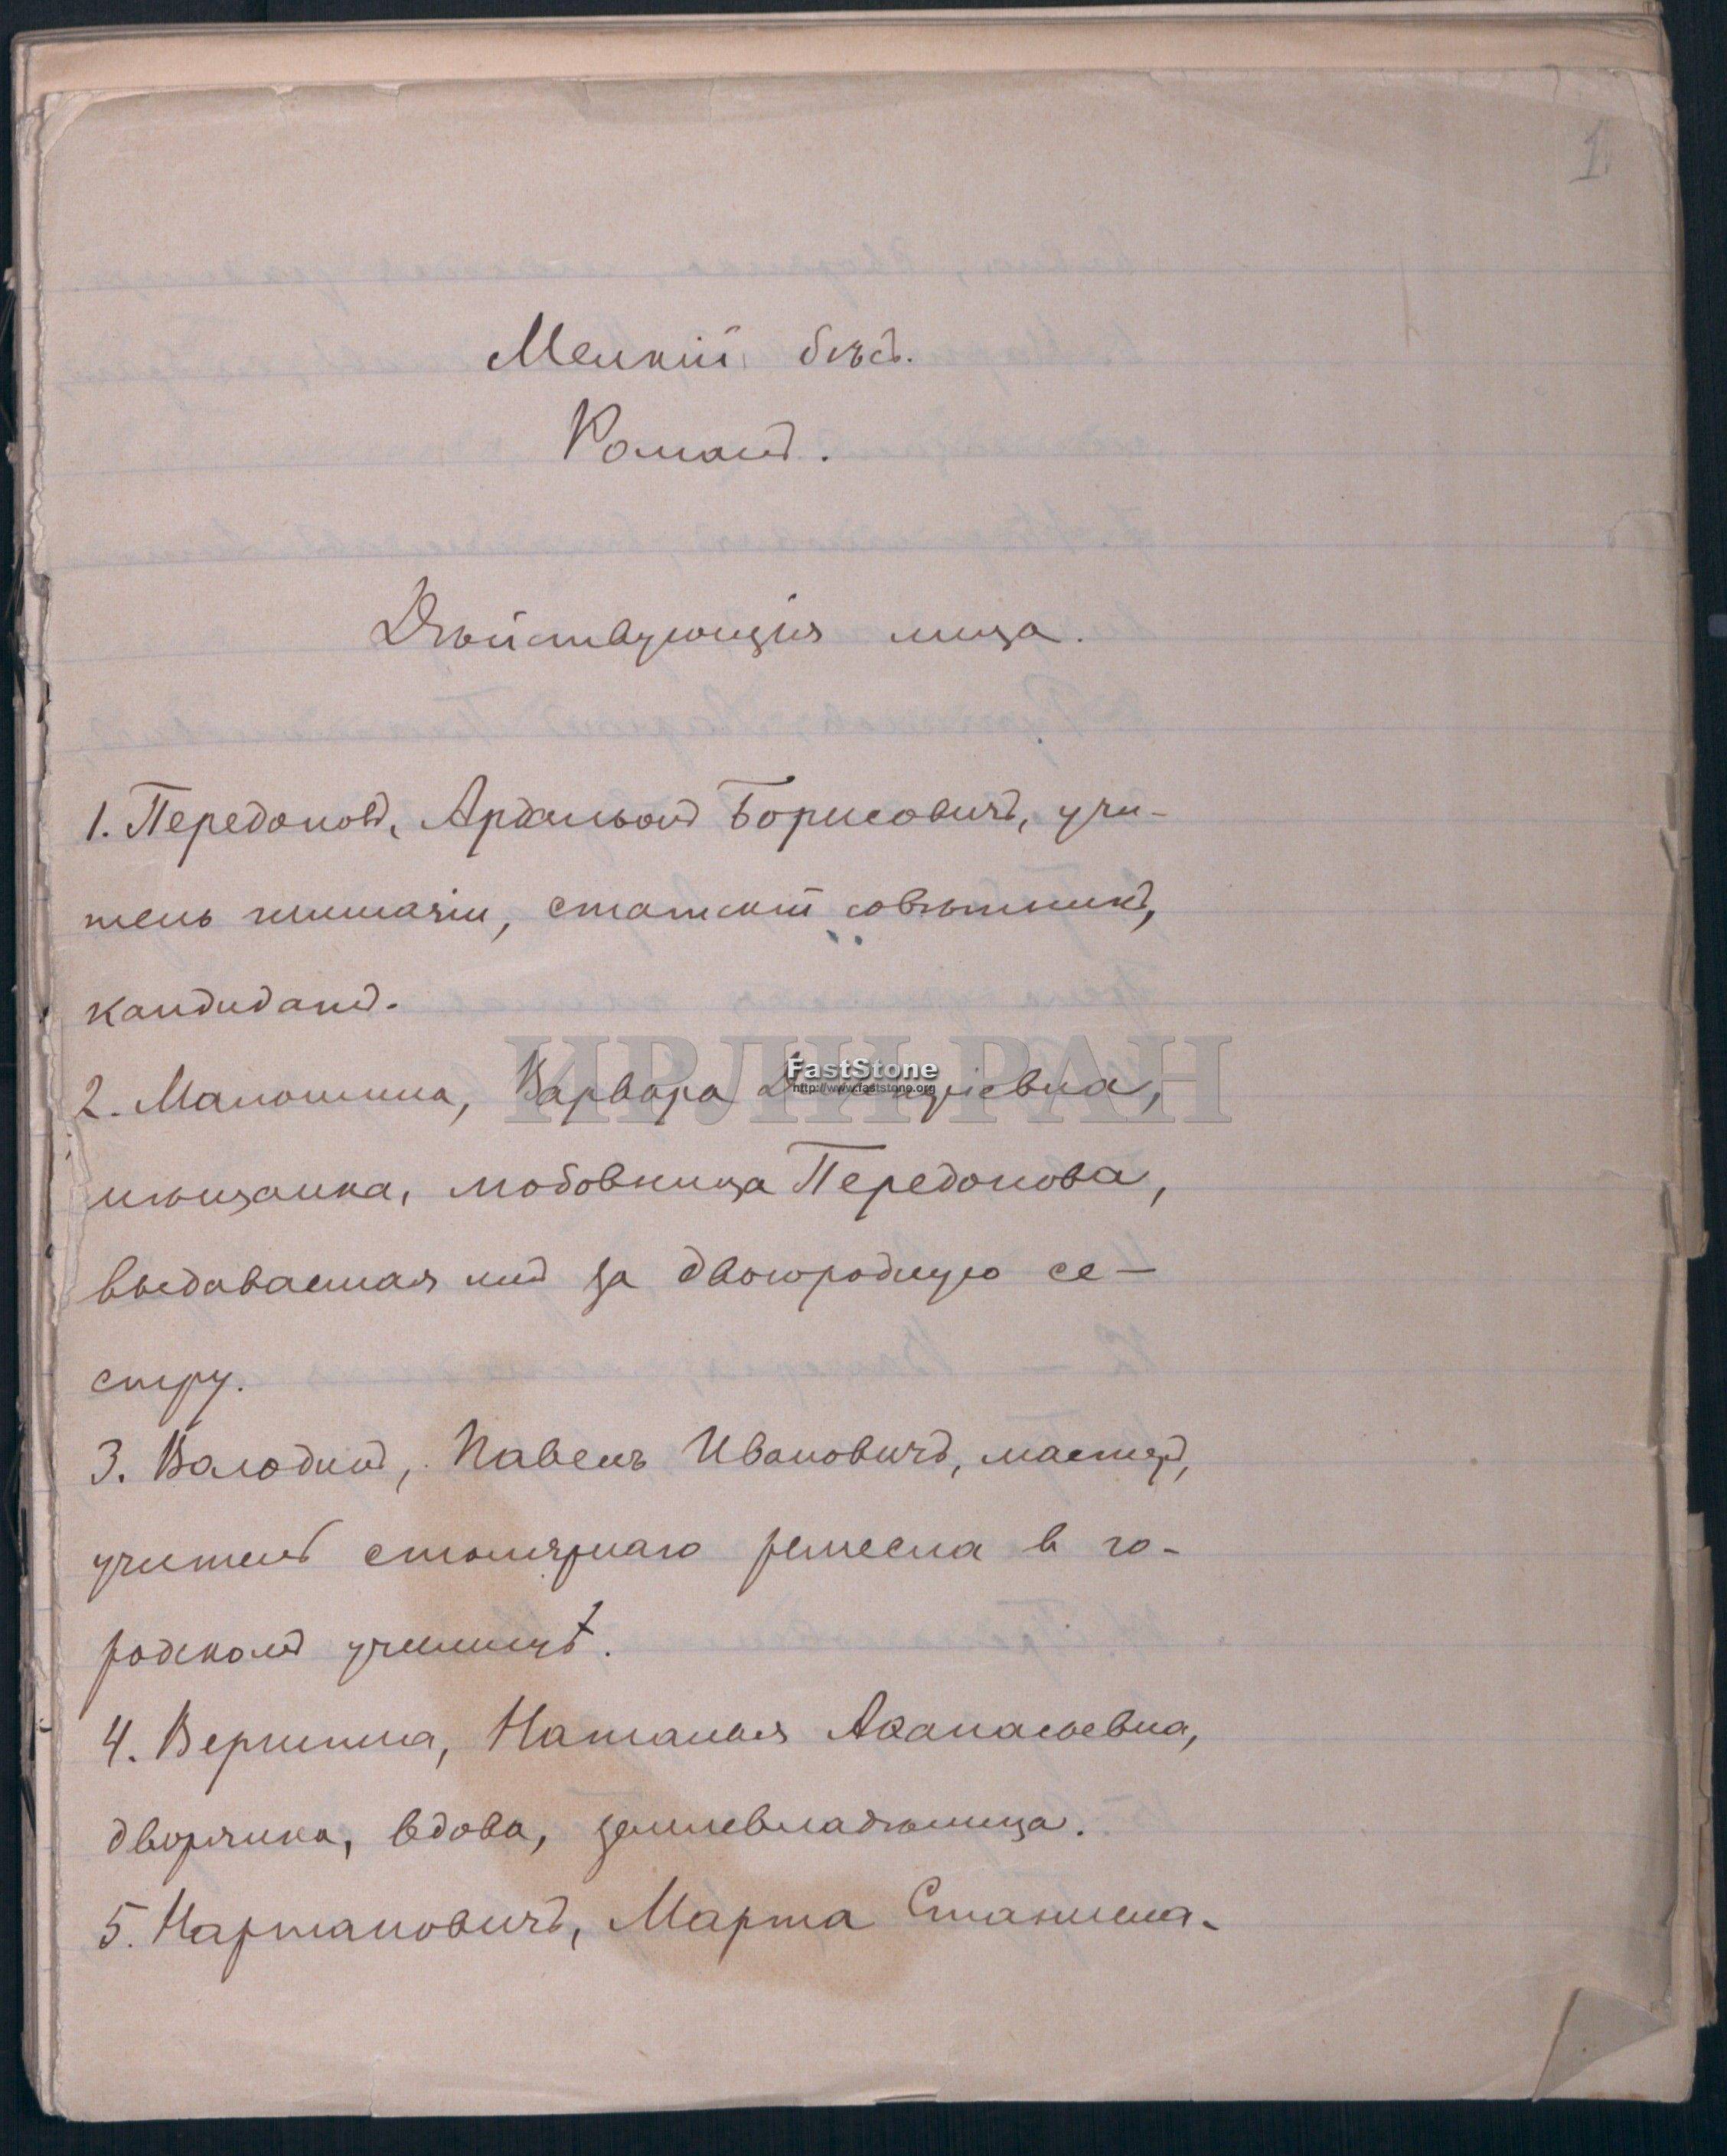 1
Мелкій бѣсъ.
Романъ.
Дѣйствующія лица.
1. Передоновъ, Ардальонъ Борисовичъ, учи-
тель гимназіи, статскій совѣтникъ,
кандидатъ.
ИРЛИ РАН
FastStone
http://www.faststone.org
2. Малошина, Варвара
мѣщанка, любовница Передонова,
выдаваемая имъ за двоюродную се-
стру.
3. Володинъ, Павелъ Ивановичъ, мастеръ,
учитель столярнаго ремесла в го-
родскомъ училищѣ.
4. Вершина, Наталья Аѳанасьевна,
дворянка, вдова, землевладѣлица.
5. Нартановичъ, Марта Станисла-